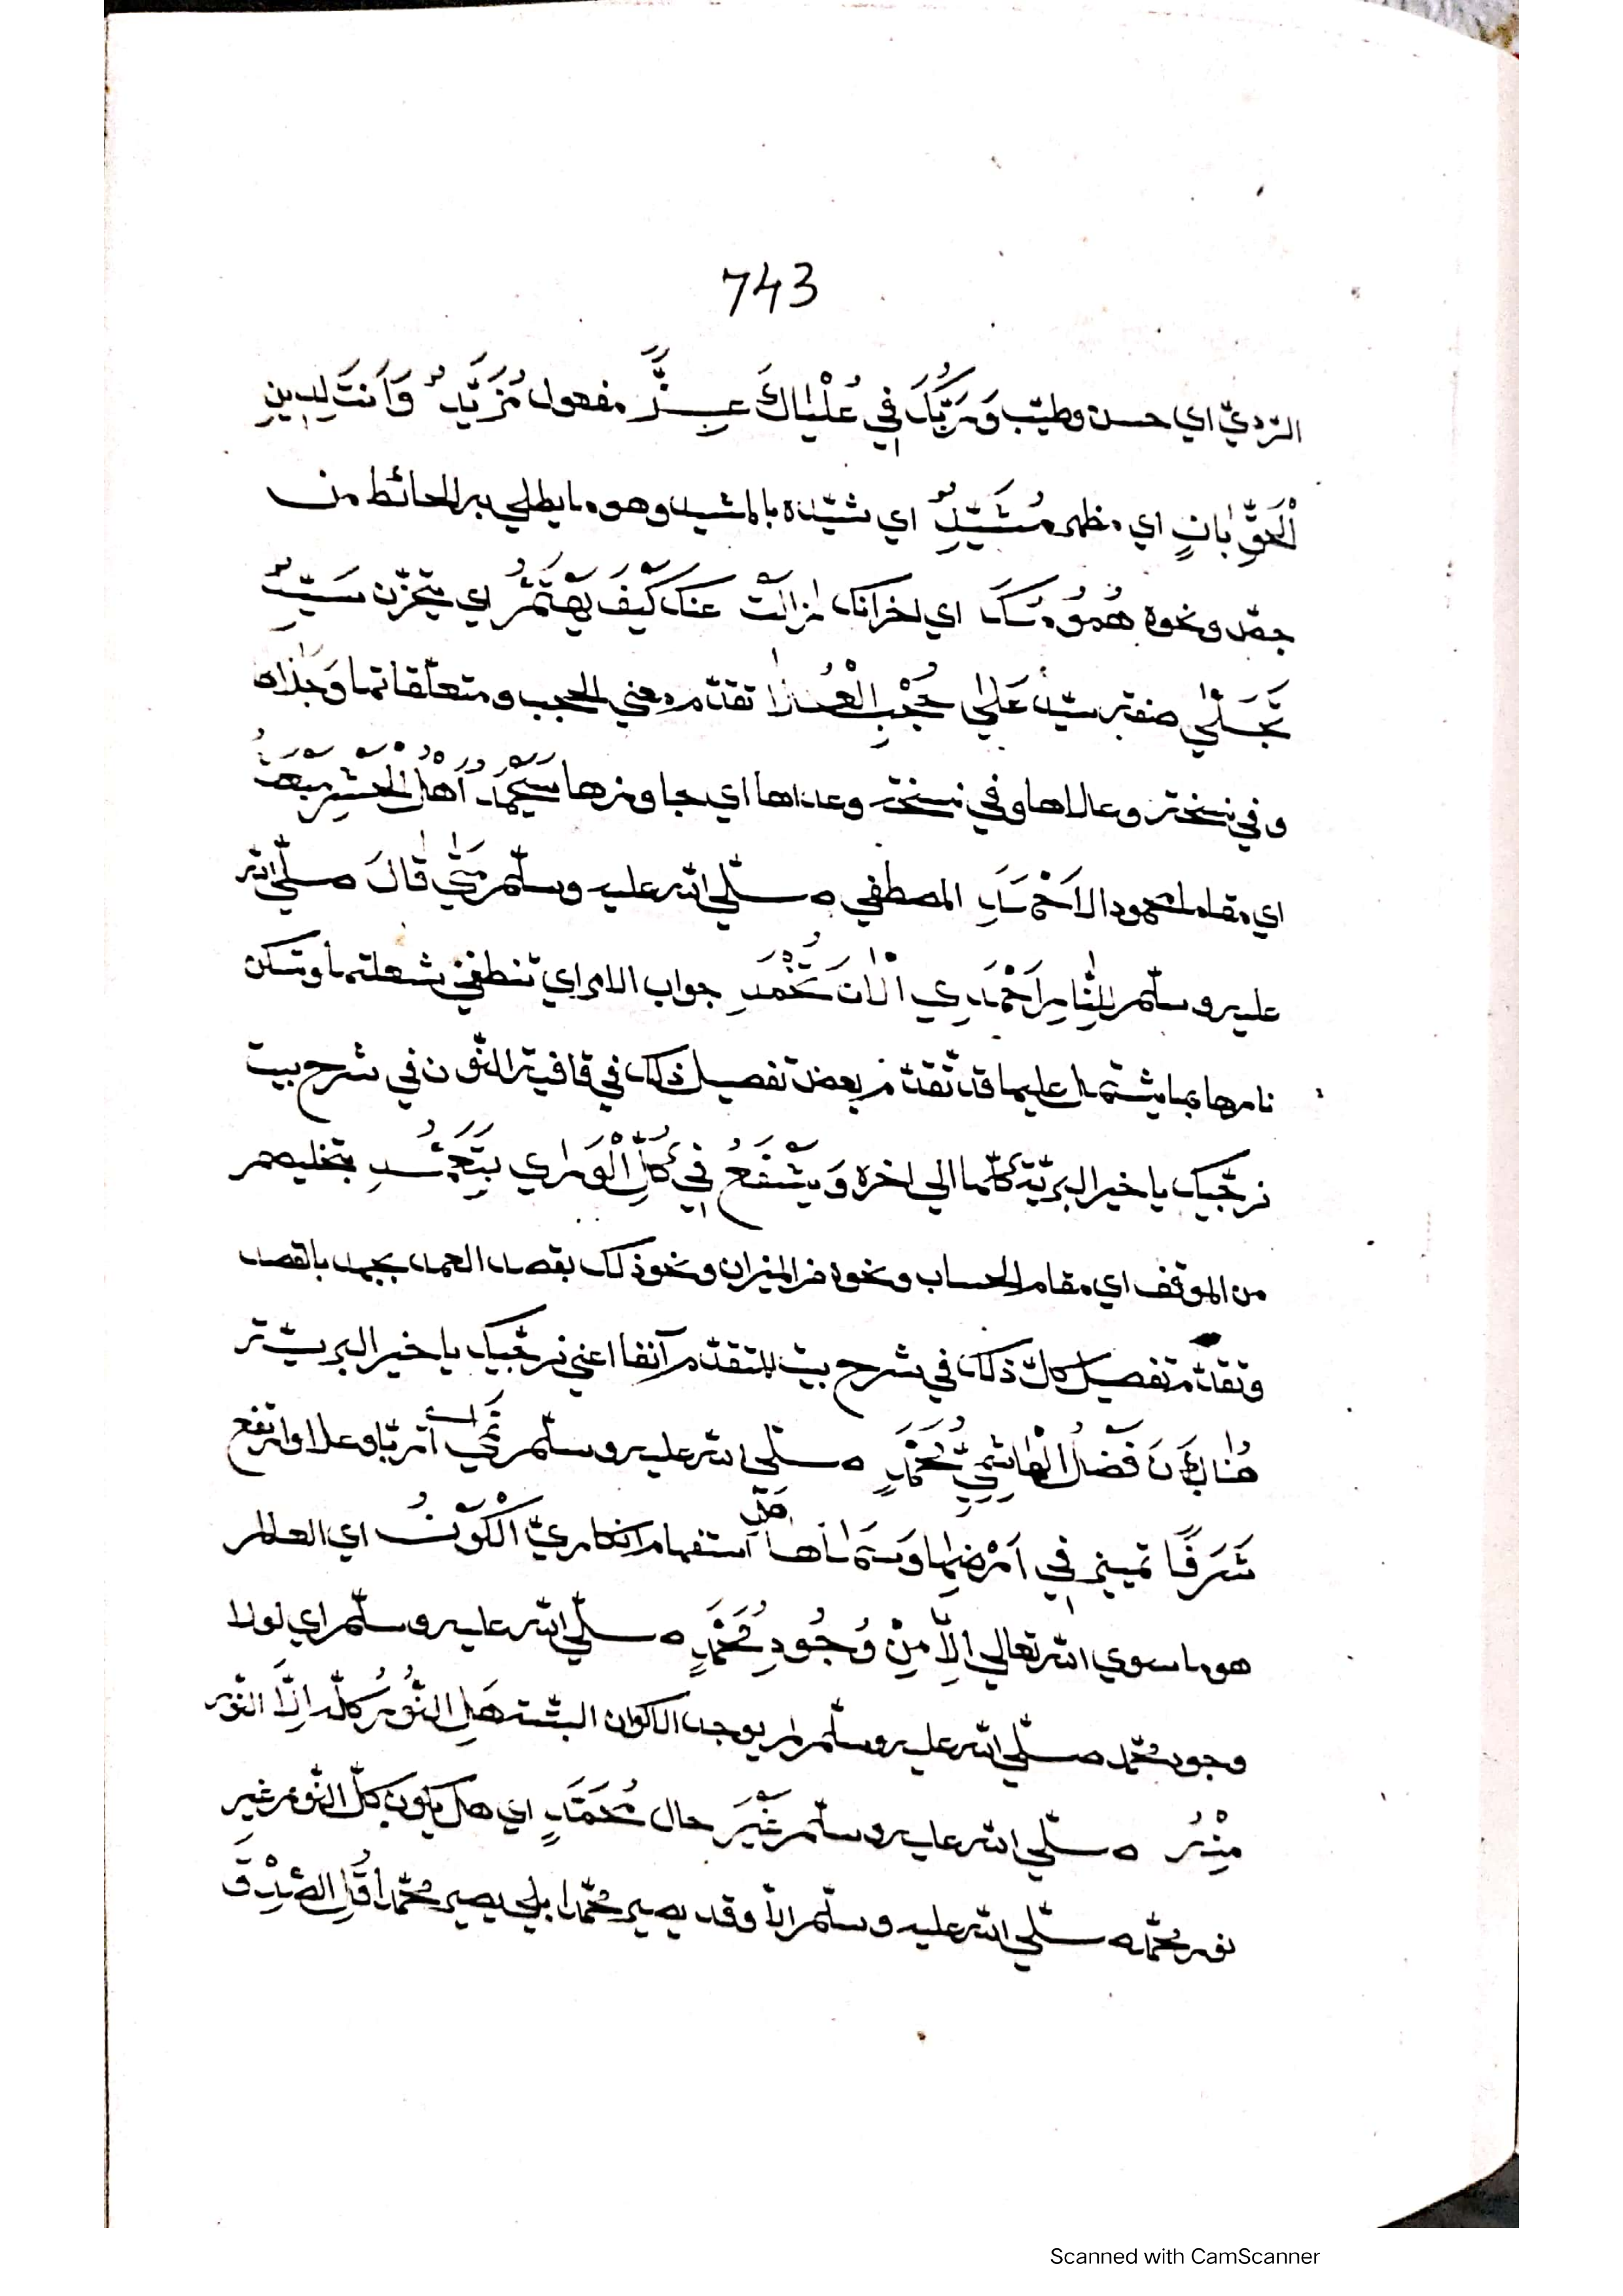 743
الرّديّ اي حسن وطيّب وَرَبُّكَ فِي عُلْيَاكَ عِزٌّ مفعول مُزَيَّدٌ وَاَنتَ لِدِينِ
الْحَقِّ بَانٍ اي مظهر مُشَيِّدٌ اي شيّده بالمشيد وهو ما يطلي به الحائط من
جصّ ونحوه هُمُوْمُكَ اي احزانك زالَتْ عنك كَيْفَ يَهْتَمُّ اي يتحزن سَيِّدٌ
تَجَلّٰي صفة سيّد عَلٰي حُجْبِ الْعُلَا تقدّم معني الحجب ومتعلّقاتها وَجَذَاه
وفي نسخة وعالاها وفي نسخة وعداها اي جاوزها سَيَحْمَدُ اَهْلُ الْحَشْرِ مَبْعَثَ
اي مقام المحمود الاَحْمَدِ المصطفي صلّي الله عليه وسلّم مَتٰي قَالَ صلّي الله
عليه وسلّم للنّارِ اَخْمِدِي الْاٰنَ تَخْمُدِ جواب الامر اي تنطفئ شعلتها وتسكن
نارها بما يشتمل عليها قد تقدّم بعض تفصيل ذلك في قافية النّون في شرح بيت
نرجّيك يا خير البريّة كلّما الي اخره وَيَشْفَعُ فِي كُلِّ الْوَرٰي بِتَجَرُّدِ بتخليصهم
من الموقف اي مقام الحساب ونحوه من الميزان ونحو ذلك بقصد العمد بجهد بالقصد
وتقدّم تفصيل كلّ ذلك في شرح بيت المتقدّم آنفا اعني نرجّيك يا خير البريّة
هُنَالِكَ فَضْلُ الْهَاشِمِيِّ مُحَمَّدٍ صلّي الله عليه وسلّم اي تربّا وعلا وارتفع
شَرَفًا تمييز فِي اَرْضِهَا وَسَمَائِهَا هَلِ استفهام انكاريّ الْكَوْنُ اي العالم
هو ما سوي الله تعالي اِلَّا مِنْ وُجُودِ مُحَمَّدٍ صلّي الله عليه وسلّم اي لولا
وجود محمّد صلّي الله عليه وسلّم لم يوجد الاكوان البتّة هَلِ النُّورُ كلّه اِلَّا النّور
مِنْهُ صلّي الله عليه وسلّم غَيْرَ حال مُحَمَّدٍ اي هل يكون كلّ النّور غير
نور محمّد صلّي الله عليه وسلّم الّا وقد يصير محمّدا بلي يصير محمّدا قُلِ الصِّدْقَ
Scanned with CamScanner